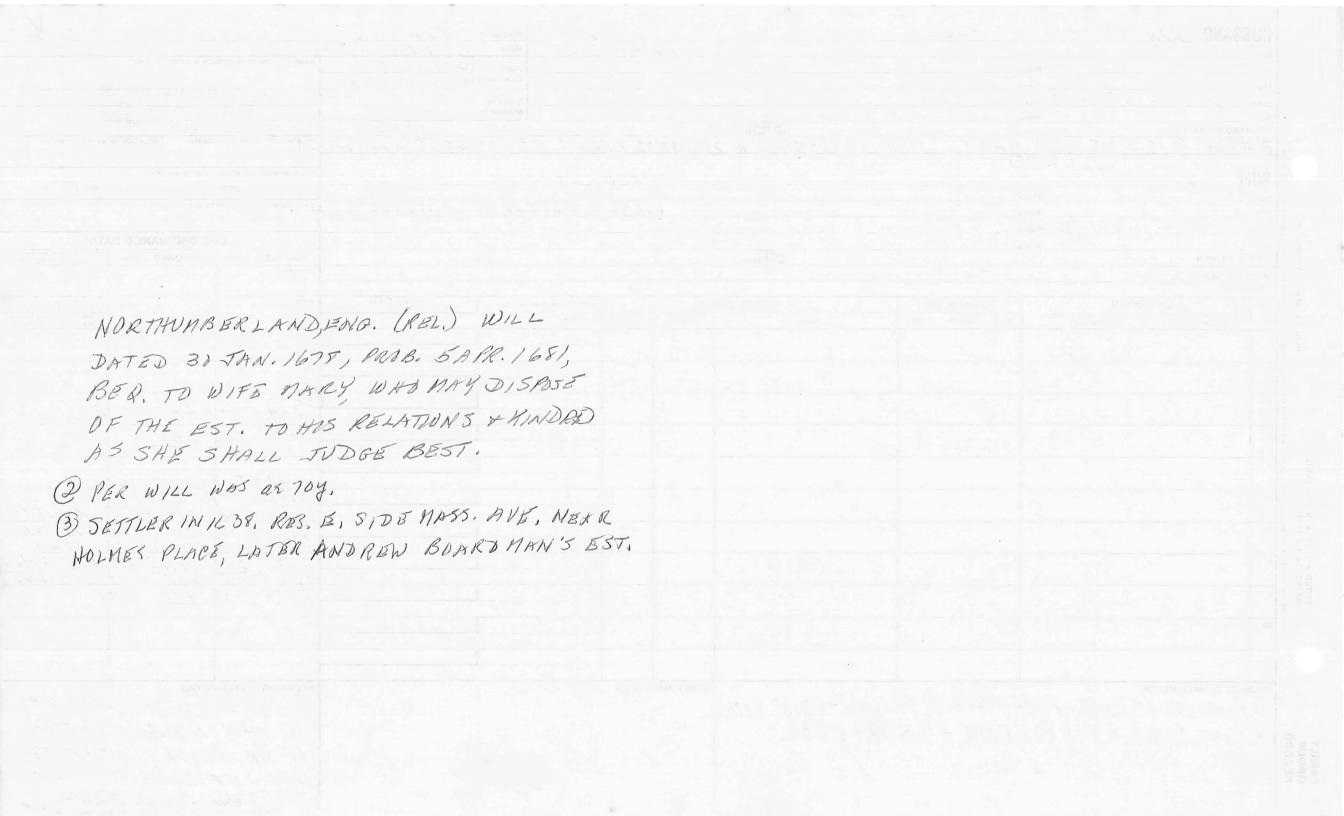 NORTHUMBERLAND, ENG. (REL.) WILL
DATED 30 JAN. 1678, PROB. 5 APR. 1681,
BEQ. TO WIFE MARY, WHO MAY DISPOSE
OF THE EST. TO HIS RELATIONS & KINDRED
AS SHE SHALL JUDGE BEST.
② PER WILL WAS ae 70y.
③ SETTLER IN 1638. RES. E. SIDE MASS. AVE. NEAR
HOLMES PLACE, LATER ANDREW BOARDMAN'S EST.